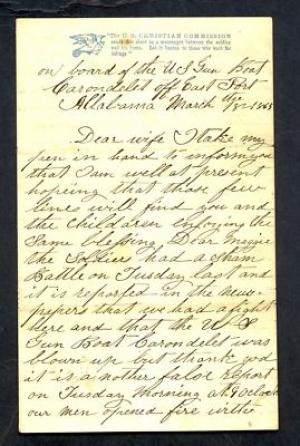 "The U. S. CHRISTIAN COMMISSION
sends this sheet as a messenger between the soldier
and his home. Let it hasten to those who wait for
tidings."
on board of the U S Gun Boat
Carondelet off East Port
Allabama March the
1865
Dear wife I take my
pen in hand to inform you
that I am well at present
hopeing that those few
lines will find you and
the Childaren enjoying the
Same blessing Dear maggie
the Soldiers had a Sham
Battle on Tusday last and
it is reported in the news-
pepers that we had a fight
here and that the U, S
Gun Boat Carondelet was
blown up but thank god
it is a nother false report
on Tusday Morning at 9 oclock
our men opened fire with